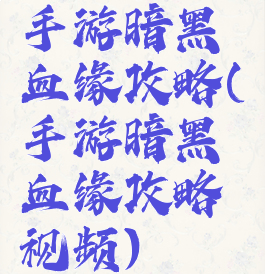 手游暗黑
血缘攻略(
手游暗黑
血缘攻略
视频)